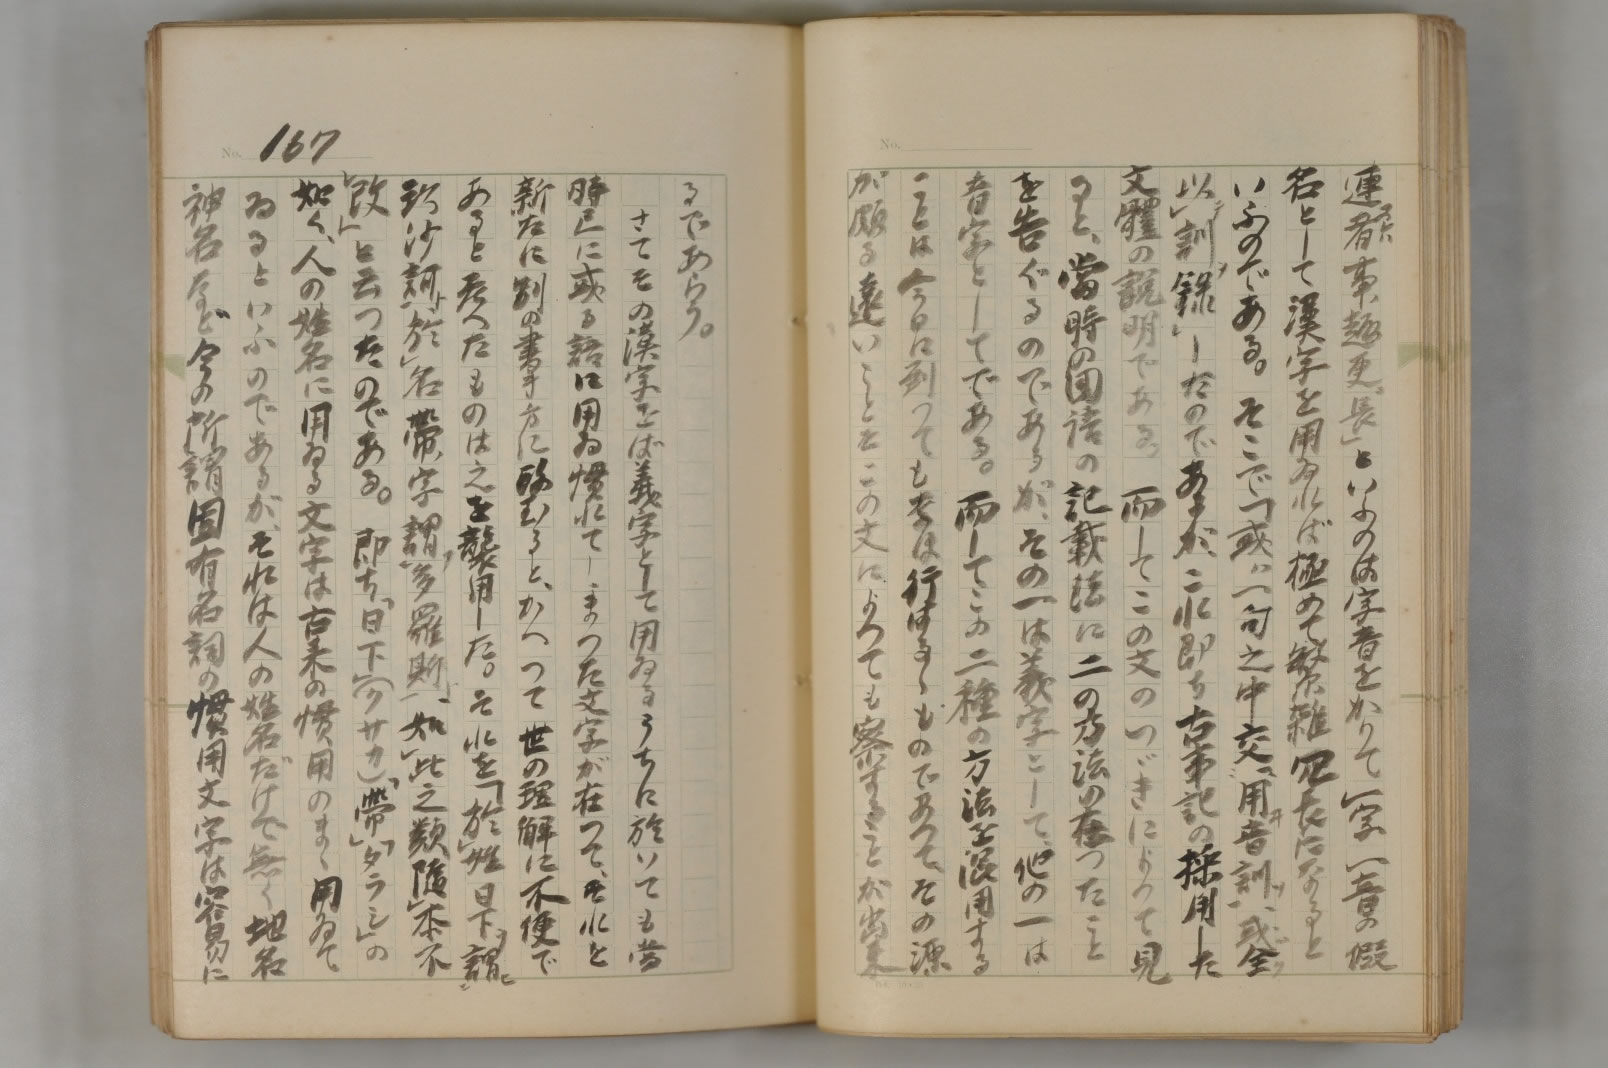 No.
連者、事趣更長」といふのは字音をかりて一字一音の假
名として漢字を用ゐれば極めて繁雜冗長になると
いふのである。そこで「或ハ一句之中交用音訓、或全
以訓錄」したのであるが、これ即ち古事記の採用した
文體の説明である。而してこの文のつゞきによつて見
ると、當時の国語の記載法に二の方法の在つたこと
を告ぐるのであるが、その一は義字として、他の一は
音字としてである。而してこの二種の方法を混用する
ことは今日に到つてもなほ行はるゝものであつて、その源
が頗る遠いことをこの文によつても察することが出來
No. 167
るであらう。
さてその漢字をば義字として用ゐるうちに於いても當
時已に或る語に用ゐ慣れてしまつた文字が在つて、それを
新たに別の書き方に改むると、かへつて世の理解に不便で
あると考へたものは之を襲用した。それを「於姓日下謂
玖沙訶、於名帶字謂多羅斯、如此之類隨本不
改」と云つたのである。即ち「日下」(クサカ)「帶」「タラシ」の
如く、人の姓名に用ゐる文字は古来の慣用のまゝ用ゐて
ゐるといふのであるが、それは人の姓名だけで無く地名
神名など今の所謂固有名詞の慣用文字は容易に